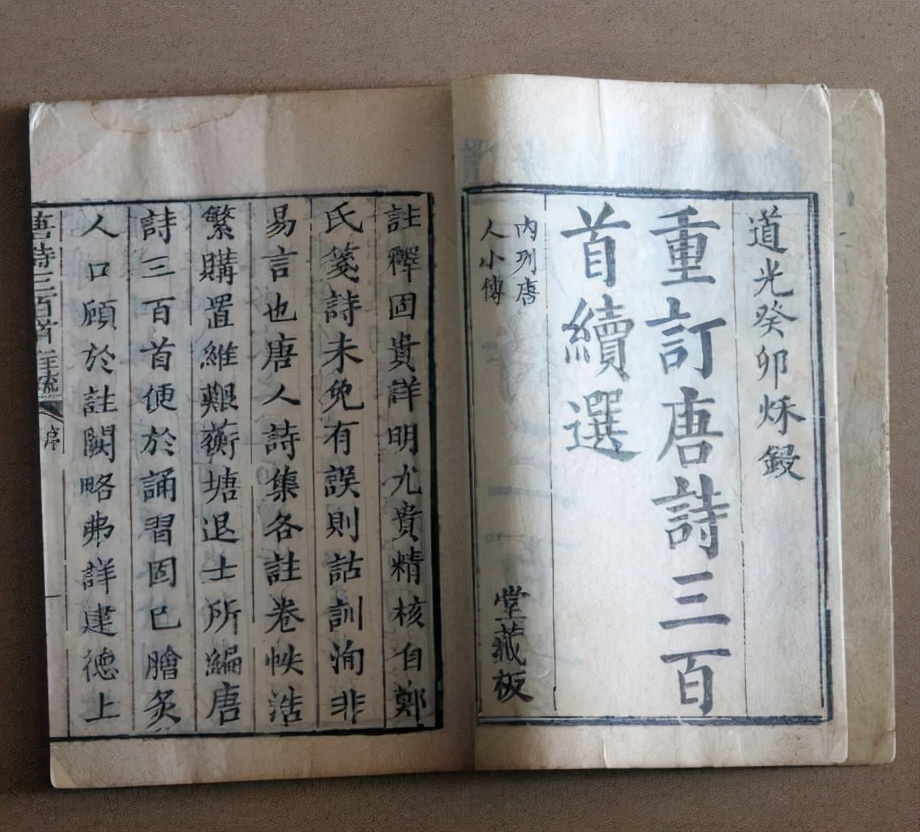 道光癸卯秌鋟
重訂唐詩三百
首續選
內列唐
人小傳
堂藏板
註釋固貴詳明尤貴精核自鄭
氏箋詩未免有誤則詁訓洵非
易言也唐人詩集各註卷帙浩
繁購置維艱蘅塘退士所編唐
詩三百首便於誦習固已膾炙
人口顧於註闕略弗詳建德上
唐詩三百首註疏
序